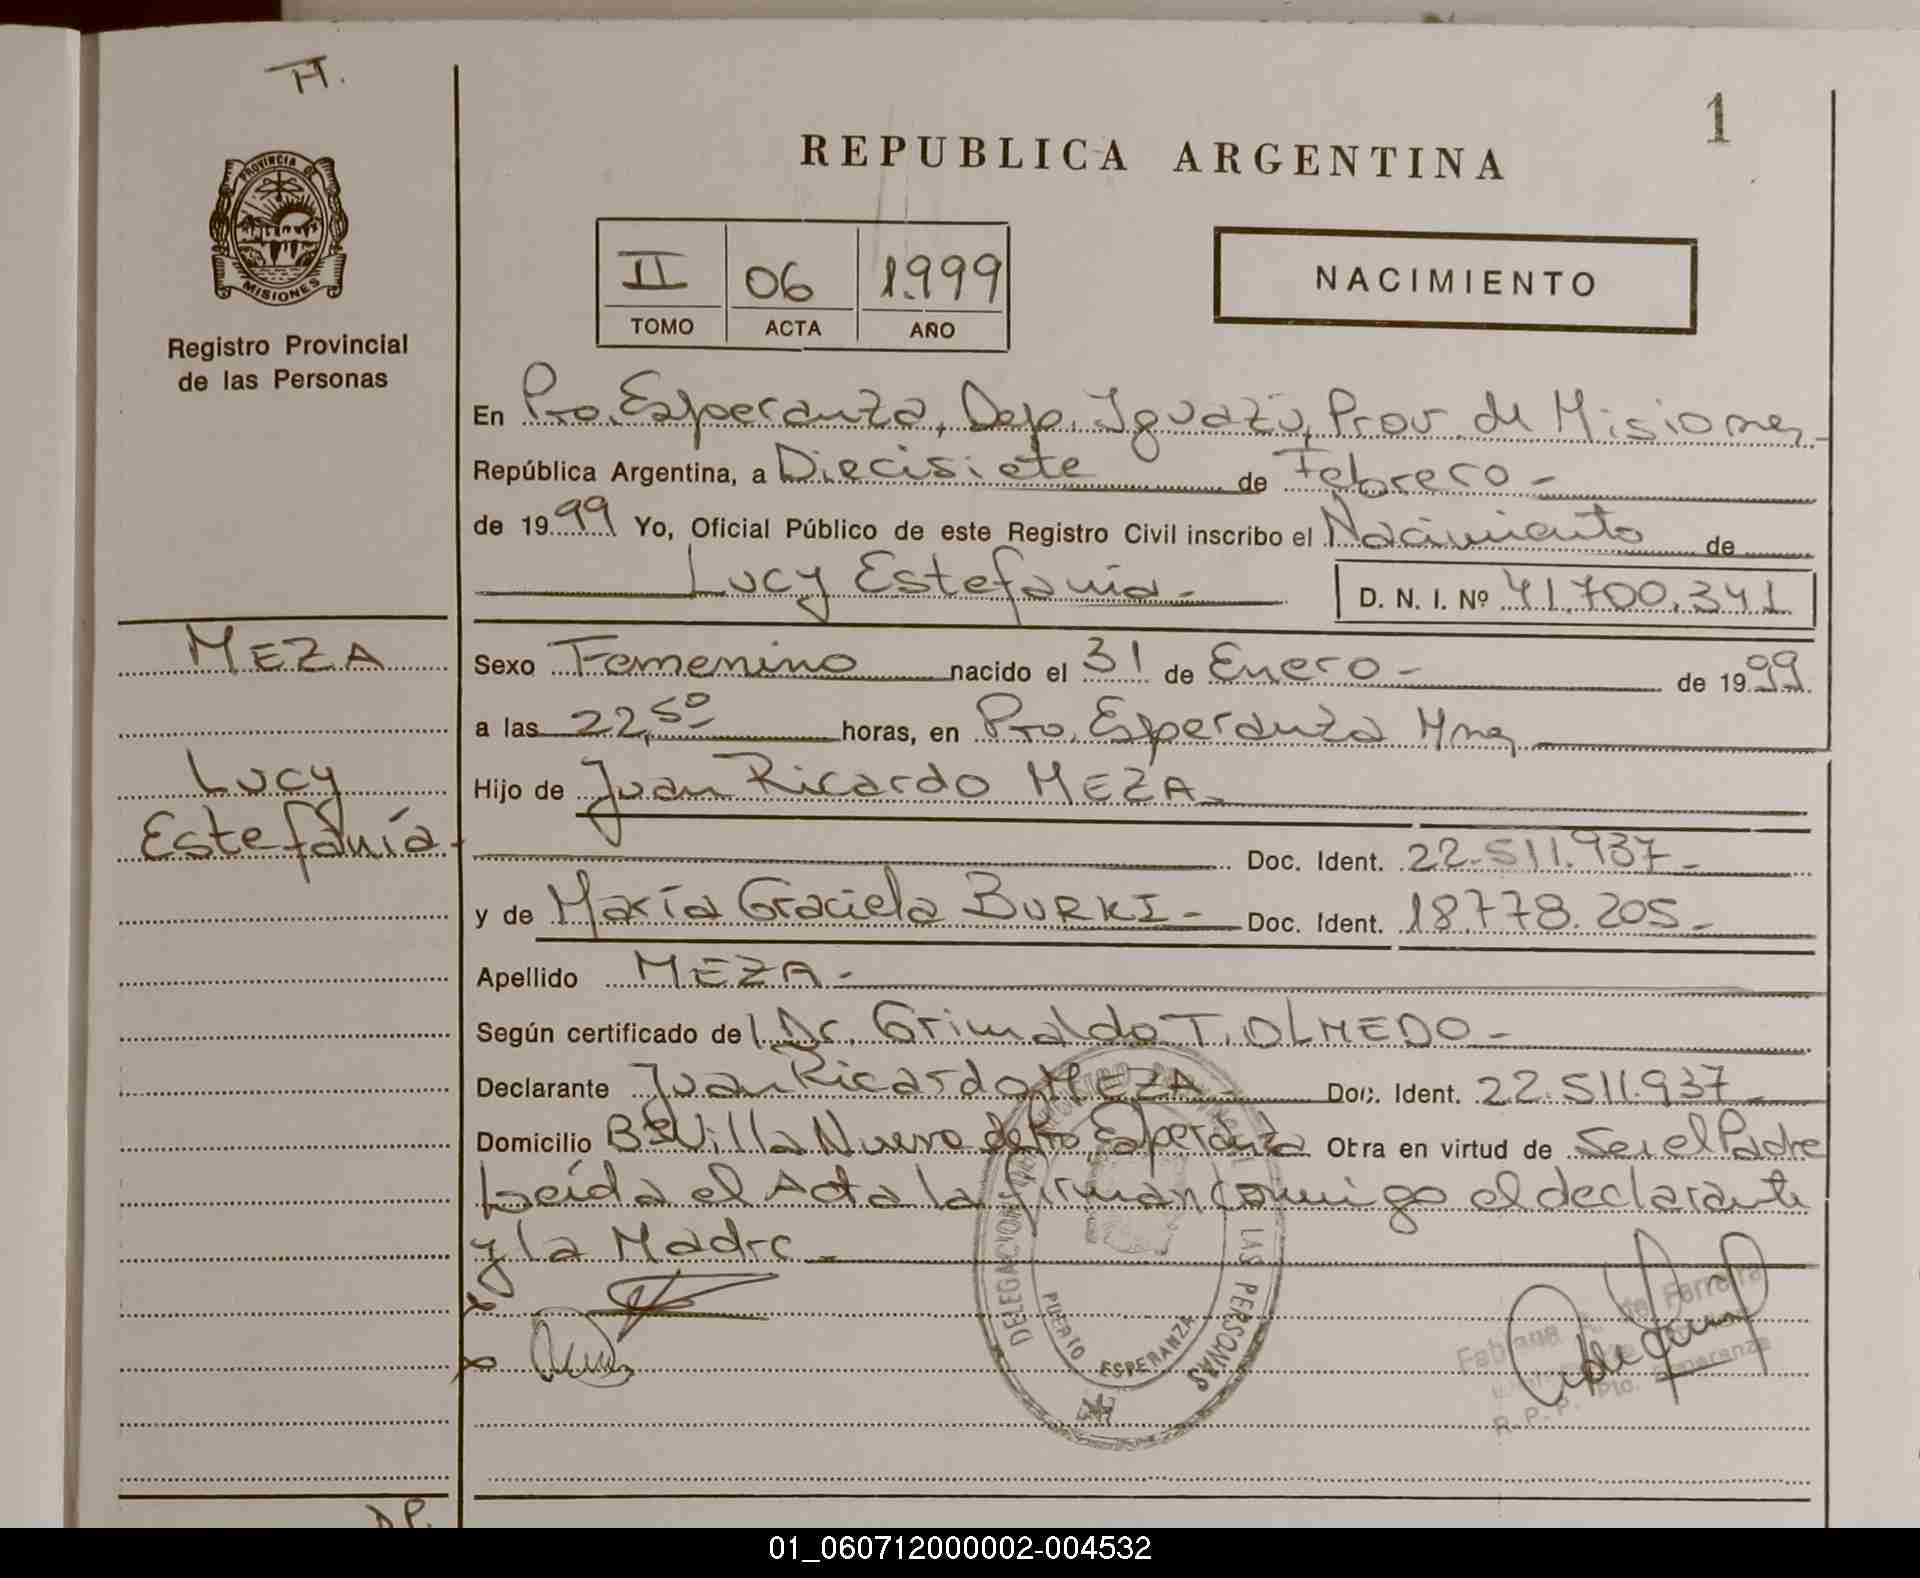 H.
1
PROVINCIA DE
MISIONES
Registro Provincial
de las Personas
REPUBLICA ARGENTINA
II 06 1.999
TOMO ACTA AÑO
NACIMIENTO
En Pto. Esperanza, Dep. Iguazú, Prov. de Misiones
República Argentina, a Diecisiete de Febrero -
de 1999 Yo, Oficial Público de este Registro Civil inscribo el Nacimiento de
Lucy Estefanía - D. N. I. Nº 41.700.341
MEZA
Lucy
Estefanía -
Sexo Femenino nacido el 31 de Enero - de 1999
a las 22,50 horas, en Pto. Esperanza Mnes
Hijo de Juan Ricardo MEZA -
Doc. Ident. 22.511.937 -
y de María Graciela BURKI - Doc. Ident. 18.778.205 -
Apellido MEZA -
Según certificado del Dr. Grimaldo T. OLMEDO -
Declarante Juan Ricardo MEZA - Doc. Ident. 22.511.937 -
Domicilio Bº Villa Nueva de Pto Esperanza Obra en virtud de Ser el Padre
Leída el Acta la firman conmigo el declarante
y la Madre -
DELEGACION LAS PERSONAS
PUERTO ESPERANZA
Fabiana de Ferreira
R. P. P. Pto. Esperanza
D.P.
01_060712000002-004532